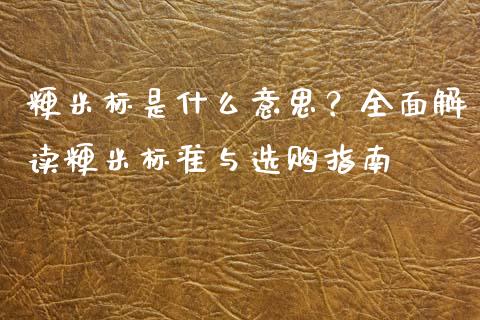 粳米标是什么意思？全面解
读粳米标准与选购指南